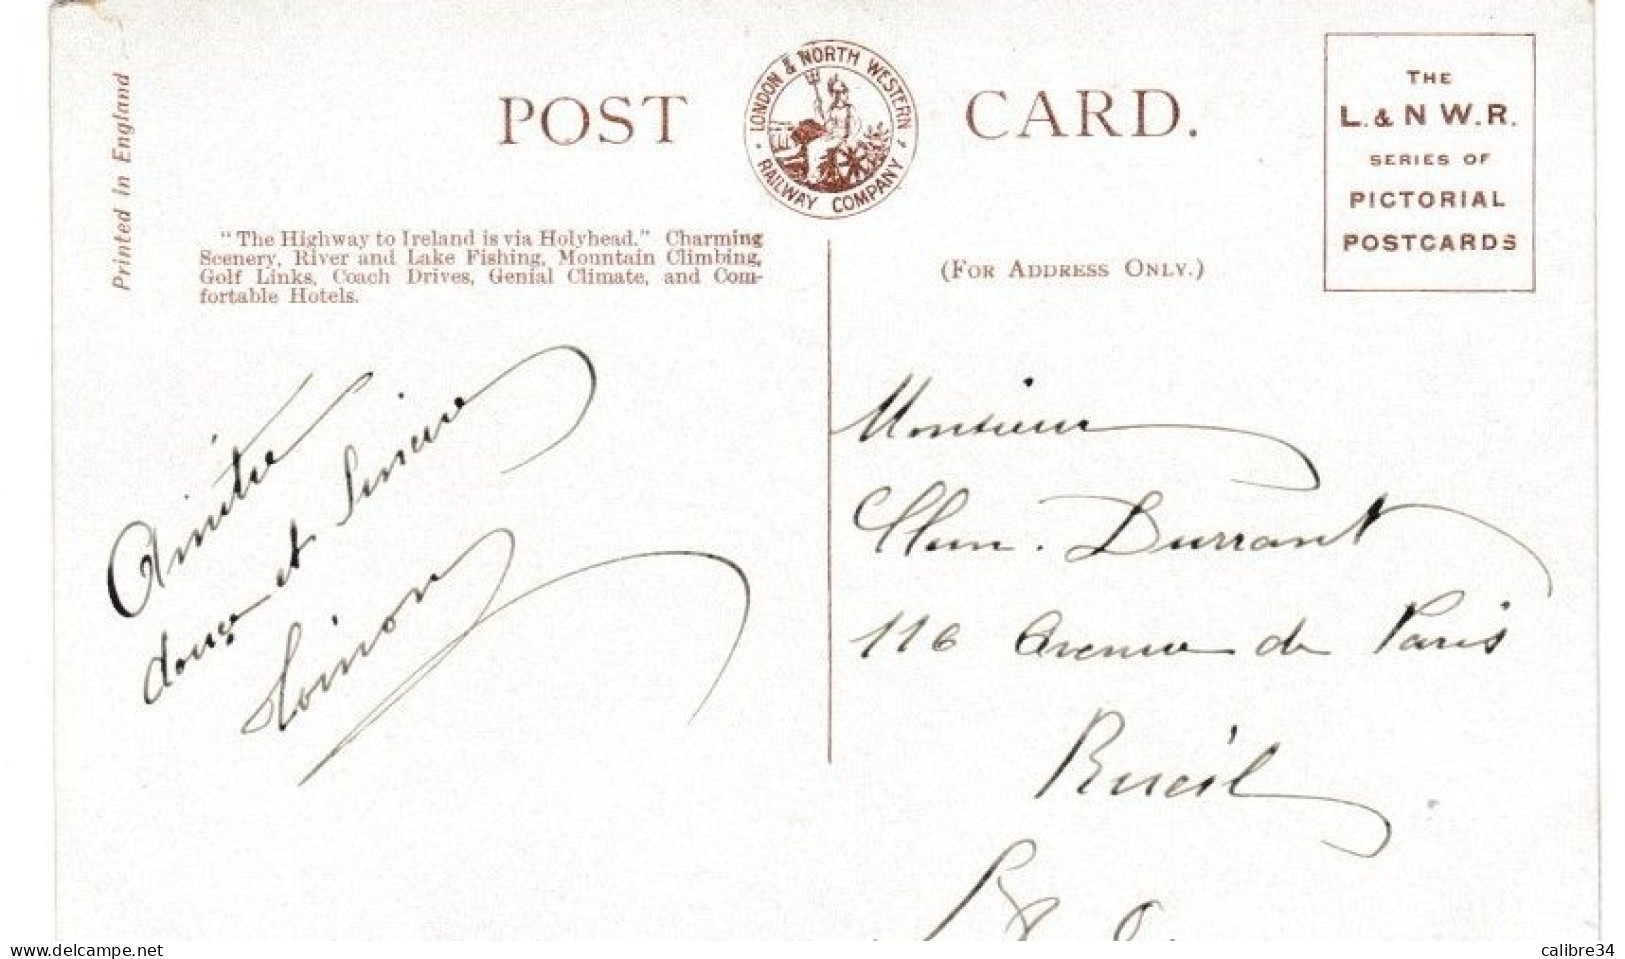 Printed in England
POST CARD.
LONDON & NORTH WESTERN
RAILWAY COMPANY
THE
L. & N W. R.
SERIES OF
PICTORIAL
POSTCARDS
"The Highway to Ireland is via Holyhead." Charming
Scenery, River and Lake Fishing, Mountain Climbing,
Golf Links, Coach Drives, Genial Climate, and Com-
fortable Hotels.
(FOR ADDRESS ONLY.)
Amitié
douce et sincère
Monsieur
Clem. Durrant
116 Avenue de Paris
Rueil
delcampe.net
calibre34